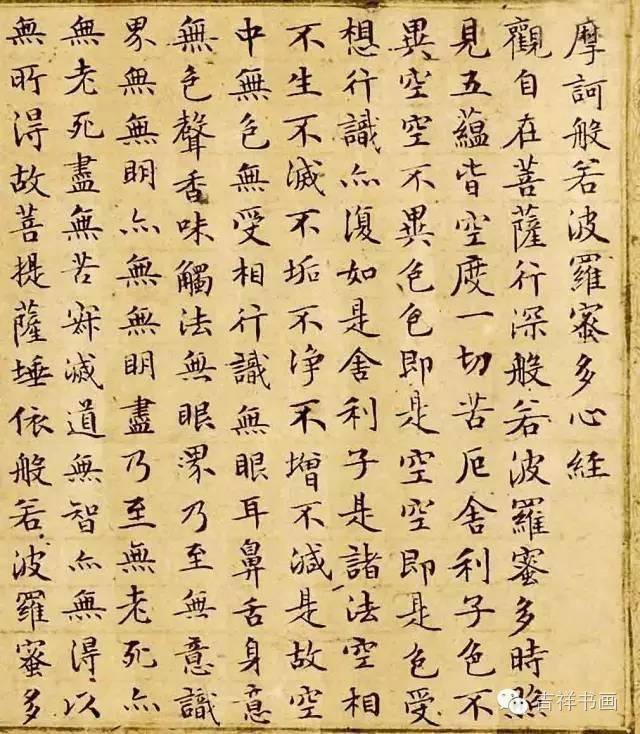 摩訶般若波羅蜜多心経
觀自在菩薩行深般若波羅蜜多時照
見五蘊皆空度一切苦厄舍利子色不
異空空不異色色即是空空即是色受
想行識亦復如是舍利子是諸法空相
不生不滅不垢不淨不增不減是故空
中無色無受相行識無眼耳鼻舌身意
無色聲香味觸法無眼界乃至無意識
界無無明亦無無明盡乃至無老死亦
無老死盡無苦寂滅道無智亦無得以
無所得故菩提薩埵依般若波羅蜜多
吉祥书画